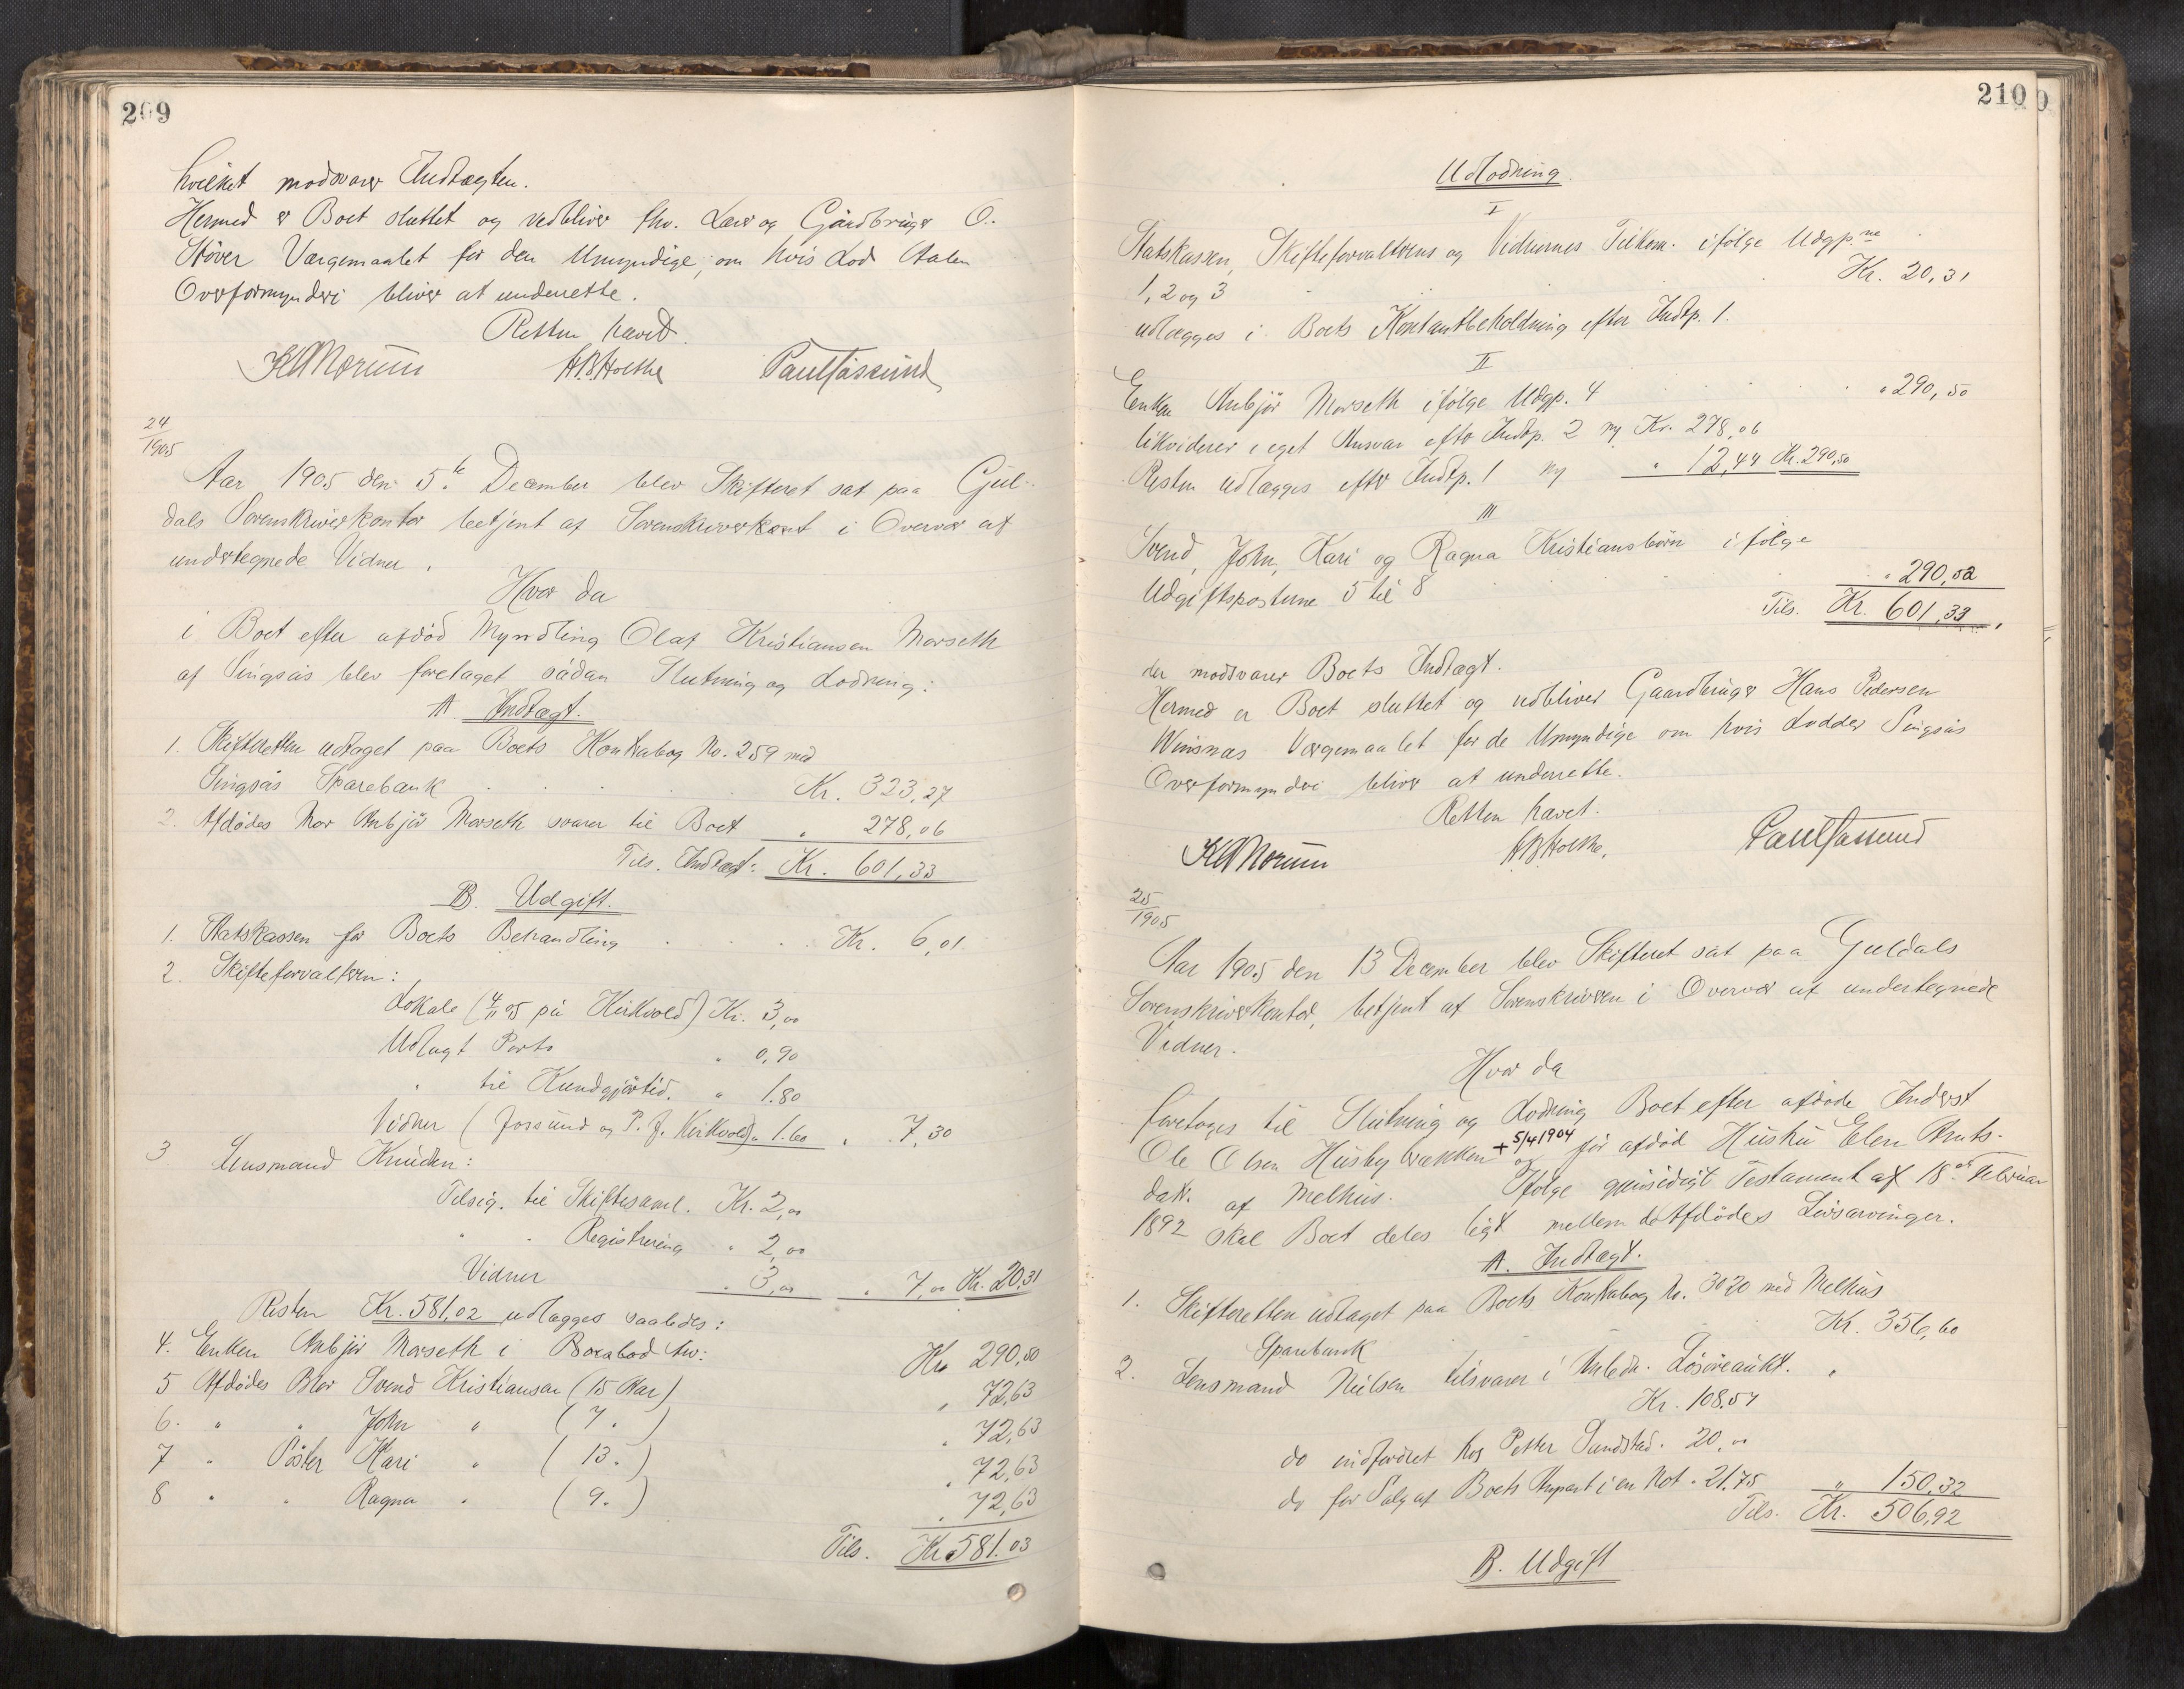 209
hvilket modsvarer Indtægten.
Hermed er Boet sluttet og vedbliver fhv. Lærer og Gårdbruger O.
Støver Værgemaalet for den Umyndige, om hvis Lod Aalen
Overformynderi bliver at underrette.
Retten hævet.
24
1905
Aar 1905 den 5te December blev Skifteret sat paa Gul-
dals Sorenskriverkontor betjent af Sorenskriverkont i Overvær af
undertegnede Vidner.
Hvor da
i Boet efter afdød Myndling Olaf Kristiansen Morseth
af Singsås blev foretaget sådan Slutning og Lodning:
A. Indtægt.
1. Skifteretten udtaget paa Boets Kontrabog No. 259 med
Singsås Sparebank . . . . Kr. 323,27
2. Afdødes Mor Anbjør Morseth svarer til Boet " 278,06
Tils. Indtægt: Kr. 601,33
B. Udgift.
1. Statskassen for Boets Behandling . . . . Kr. 6,01
2. Skifteforvalteren:
Lokale (4/11 05 på Kirkvold) Kr. 3,00
Udlagt Porto " 0,90
" til Kundgjørtid. " 1.80
Vidner (Jossund og P. J. Kirkvold) " 1.60 " 7,30
3 Lensmand Knudsen:
Tilsig. til Skiftesaml. Kr. 2,00
" " Registrering " 2,00
Vidner " 3,00 " 7,00 Kr. 20.31
Resten Kr. 581,02 udlægges saaledes:
4. Enken Anbjør Morseth i Boxabod Kr 290,50
5 Afdødes Bror Svend Kristiansen (15 Aar) " 72,63
6. " " John " (7 " ) " 72,63
7 " Søster Kari " (13 " ) " 72,63
8 " " Ragna " (9 " ) " 72,63
Tils. Kr 581.03
210
Udlodning.
I
Statskassen, Skifteforvalterens og Vidnernes Tilkom. ifølge Udgp.ne
1, 2 og 3 Kr. 20,31
udlægges i Boets Kontantbeholdning efter Indtp. 1.
II
Enken Anbjør Morseth ifølge Udgp. 4 . . . . " 290,50
likviderer i eget Ansvar efter Indtp. 2 my Kr. 278,06
Resten udlægges efter Indtp. 1 my " 12,44 Kr. 290,50
III
Svend, John, Kari og Ragna Kristiansbørn ifølge
Udgiftsposterne 5 til 8 " 290,52
Tils. Kr. 601,33,
der modsvarer Boets Indtægt.
Hermed er Boet sluttet og vedbliver Gaardbruger Hans Pedersen
Winsnæs Værgemaalet for de Umyndige om hvis Lodder Singsås
Overformynderi bliver at underrette.
Retten hævet.
25
1905
Aar 1905 den 13 December blev Skifteret sat paa Guldals
Sorenskriverkontor, betjent af Sorenskriveren i Overvær af undertegnede
Vidner.
Hvor da
foretoges til Slutning og Lodning Boet efter afdøde Inderst
Ole Olsen Husbytrøkken + 5/4 1904 og før afdød Hustru Elen Arnts-
dat. af Melhus. Ifølge gjensidigt Testament af 18de Februar
1892 skal Boet deles ligt mellem de Afdødes Livsarvinger.
A. Indtægt.
1. Skifteretten udtaget paa Boets Kontrabog No. 3020 med Melhus
Sparebank Kr. 356,60
2. Lensmand Nielsen tilsvarer i Anledn. Løsøreaukt. "
Kr. 108.57
do indfordret hos Petter Sundstad " 20,00
do for Salg af Boets Anpart i en Not " 21.75 " 150,32
Tils. Kr. 506,92
B. Udgift